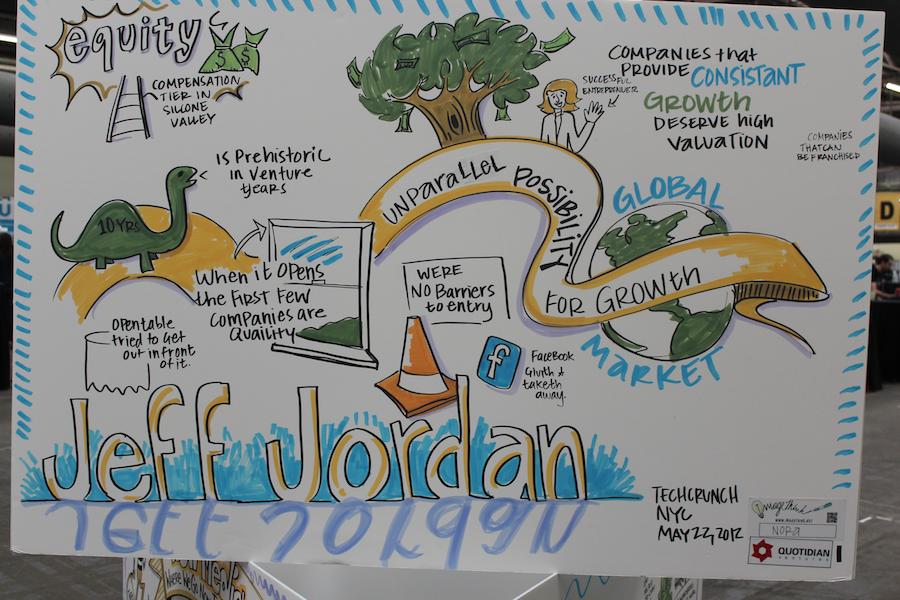 equity
COMPENSATION
TIER IN
SILICONE
VALLEY
Is Prehistoric
in venture
years
10 YRS
When it opens
the first few
companies are
Quaility
Opentable
tried to get
out in front
of it.
UNPARALLEL POSSIBILITY
FOR GROWTH
SUCCESSFUL
ENTREPRENUER
COMPANIES that
PROVIDE CONSISTANT
Growth
DESERVE high
VALUATION
COMPANIES
THAT CAN
BE FRANCHISED
GLOBAL
MARKET
WERE
NO Barriers
to entry
f
Facebook
Giveth &
taketh
away.
Jeff Jordan
TECHCRUNCH
NYC
MAY 22, 2012
ImageThink
NORA
QUOTIDIAN
VENTURES
D